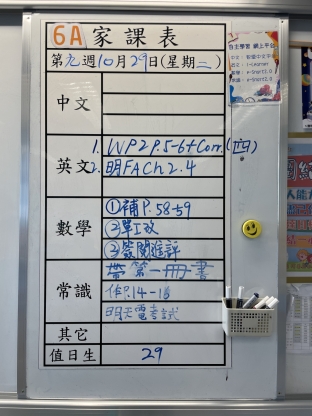 6A 家課表
第九週10月29日(星期二)
中文
英文
1. WP2 P.5-6+Corr.(四)
2. 明FA Ch2.4
數學
①補P.58-59
②單I改
③簽閱進評
常識
帶第一冊書
作P.14-18
明天電考試
其它
值日生
29
自主學習 網上平台